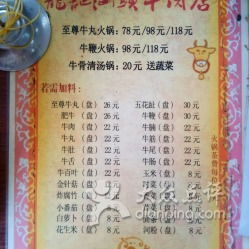 龍記汕頭牛肉店
至尊牛丸火锅：78元/98元/118元
牛鞭火锅：98元/118元
牛骨清汤锅：20元 送蔬菜
若需加料：
至尊牛丸（盘） 26元
肥牛（盘） 26元
牛肉（盘） 22元
牛丸（盘） 22元
牛肚（盘） 22元
牛舌（盘） 22元
牛百叶（盘） 22元
金针菇（盘） 8元
炸腐竹（盘） 8元
小番茄（盘） 8元
白萝卜（盘） 8元
花生米（盘） 8元
五花趾（盘） 30元
牛鞭（盘） 30元
牛腩（盘） 22元
牛筋（盘） 22元
牛杂（盘） 22元
牛肠（盘） 22元
玉米（盘） 8元
河粉（盘） 8元
火锅茶费每位
大众点评
dianping.com